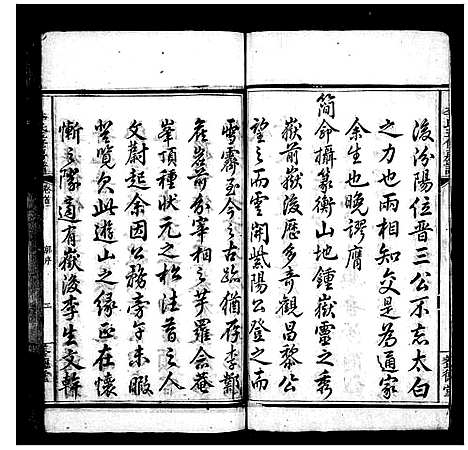 後汾陽位晋三公不忘太白
之力也兩相知交是為通家
余生也晚謬膺
簡命攝篆衡山地鍾嶽靈之秀
嶽前嶽後歷多奇觀昌黎公
望之而雲開紫陽公登之而
雪霽至今之古跡猶存李鄴
侯岩前分宰相之芋羅念菴
峯頂種狀元之松往昔之人
文蔚起余因公務旁午未暇
登覽欠此遊山之緣正在懷
慚之際適有嶽後李生文軒
郭序
二